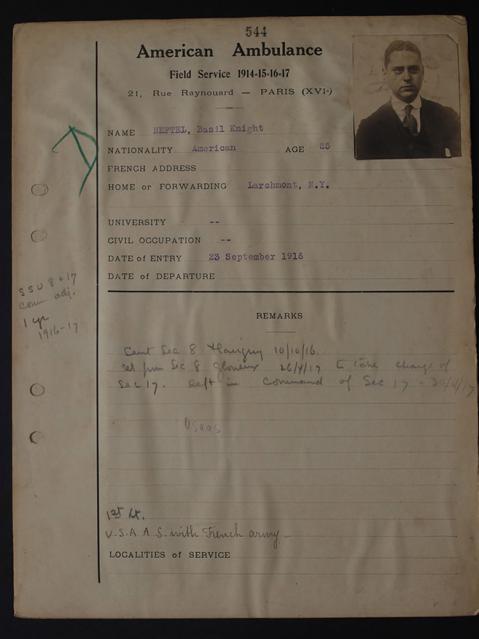 544
American Ambulance
Field Service 1914-15-16-17
21, Rue Raynouard — PARIS (XVIe)
NAME NEFTEL, Basil Knight
NATIONALITY American AGE 25
FRENCH ADDRESS
HOME or FORWARDING Larchmont, N.Y.
UNIVERSITY --
CIVIL OCCUPATION --
DATE of ENTRY 23 September 1916
DATE of DEPARTURE
SSU 8 + 17
Com adj.
1 yr
1916-17
REMARKS
Sent Sec 8 10/10/16.
ret from Sec 8 26/4/17 to take charge of
Sec 17. Left in command of Sec 17 -
Usaas
1st Lt.
U.S.A.A.S. with French army
LOCALITIES of SERVICE